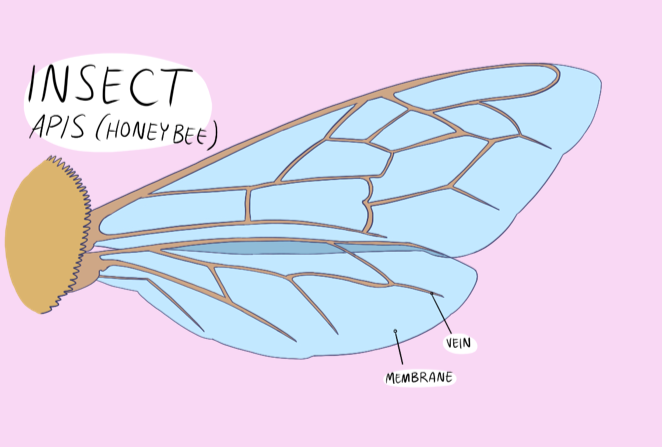 INSECT
APIS (HONEY BEE)
VEIN
MEMBRANE